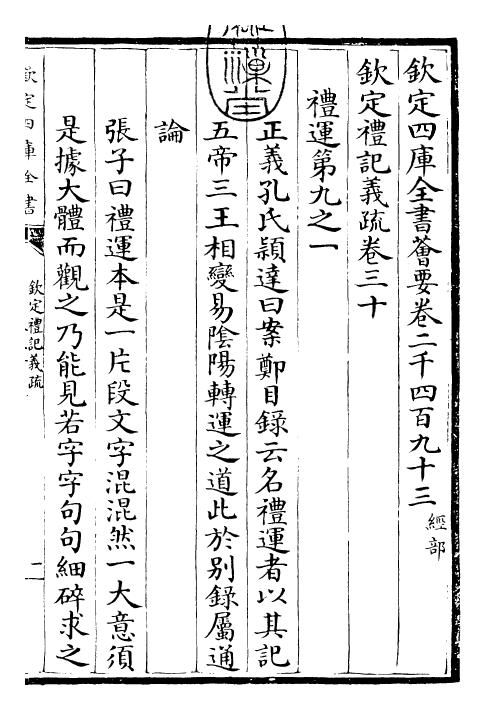 欽定四庫全書薈要卷二千四百九十三 經部
欽定禮記義疏卷三十
禮運第九之一
正義孔氏穎達曰案鄭目錄云名禮運者以其記
五帝三王相變易陰陽轉運之道此於别錄屬通
論
張子曰禮運本是一片段文字混混然一大意須
是據大體而觀之乃能見若字字句句細碎求之
欽定四庫全書
欽定禮記義疏